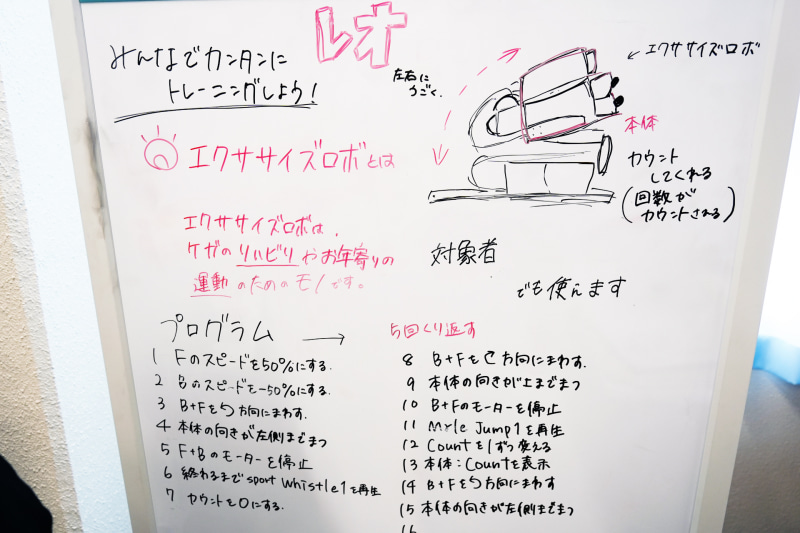 レオ
みんなでカンタンに
トレーニングしよう!
左右に
うごく.
エクササイズロボ
本体
カウント
してくれる
(回数が
カウントされる)
エクササイズロボとは
エクササイズロボは、
ケガのリハビリやお年寄りの
運動のためのモノです。
対象者
でも使えます
プログラム →
5回くり返す
1 Fのスピードを50%にする.
2 Bのスピードを-50%にする.
3 B+Fを方向にまわす.
4 本体の向きが左側までまつ
5 F+Bのモーターを停止
6 終わるまでsport whistle1を再生
7 カウントを0にする.
8 B+Fを方向にまわす.
9 本体の向きが上までまつ
10 B+Fのモーターを停止
11 Jump1を再生
12 Countを1ずつ変える
13 本体:Countを表示
14 B+Fを方向にまわす
15 本体の向きが左側までまつ
16